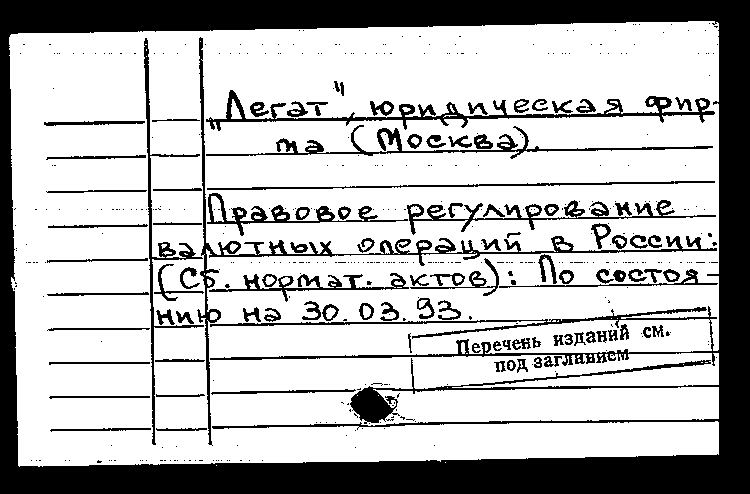 „Легат", юридическая фир-
ма (Москва).
Правовое регулирование
валютных операций в России:
(Сб. нормат. актов): По состоя-
нию на 30.03.93.
Перечень изданий см.
под заглавием